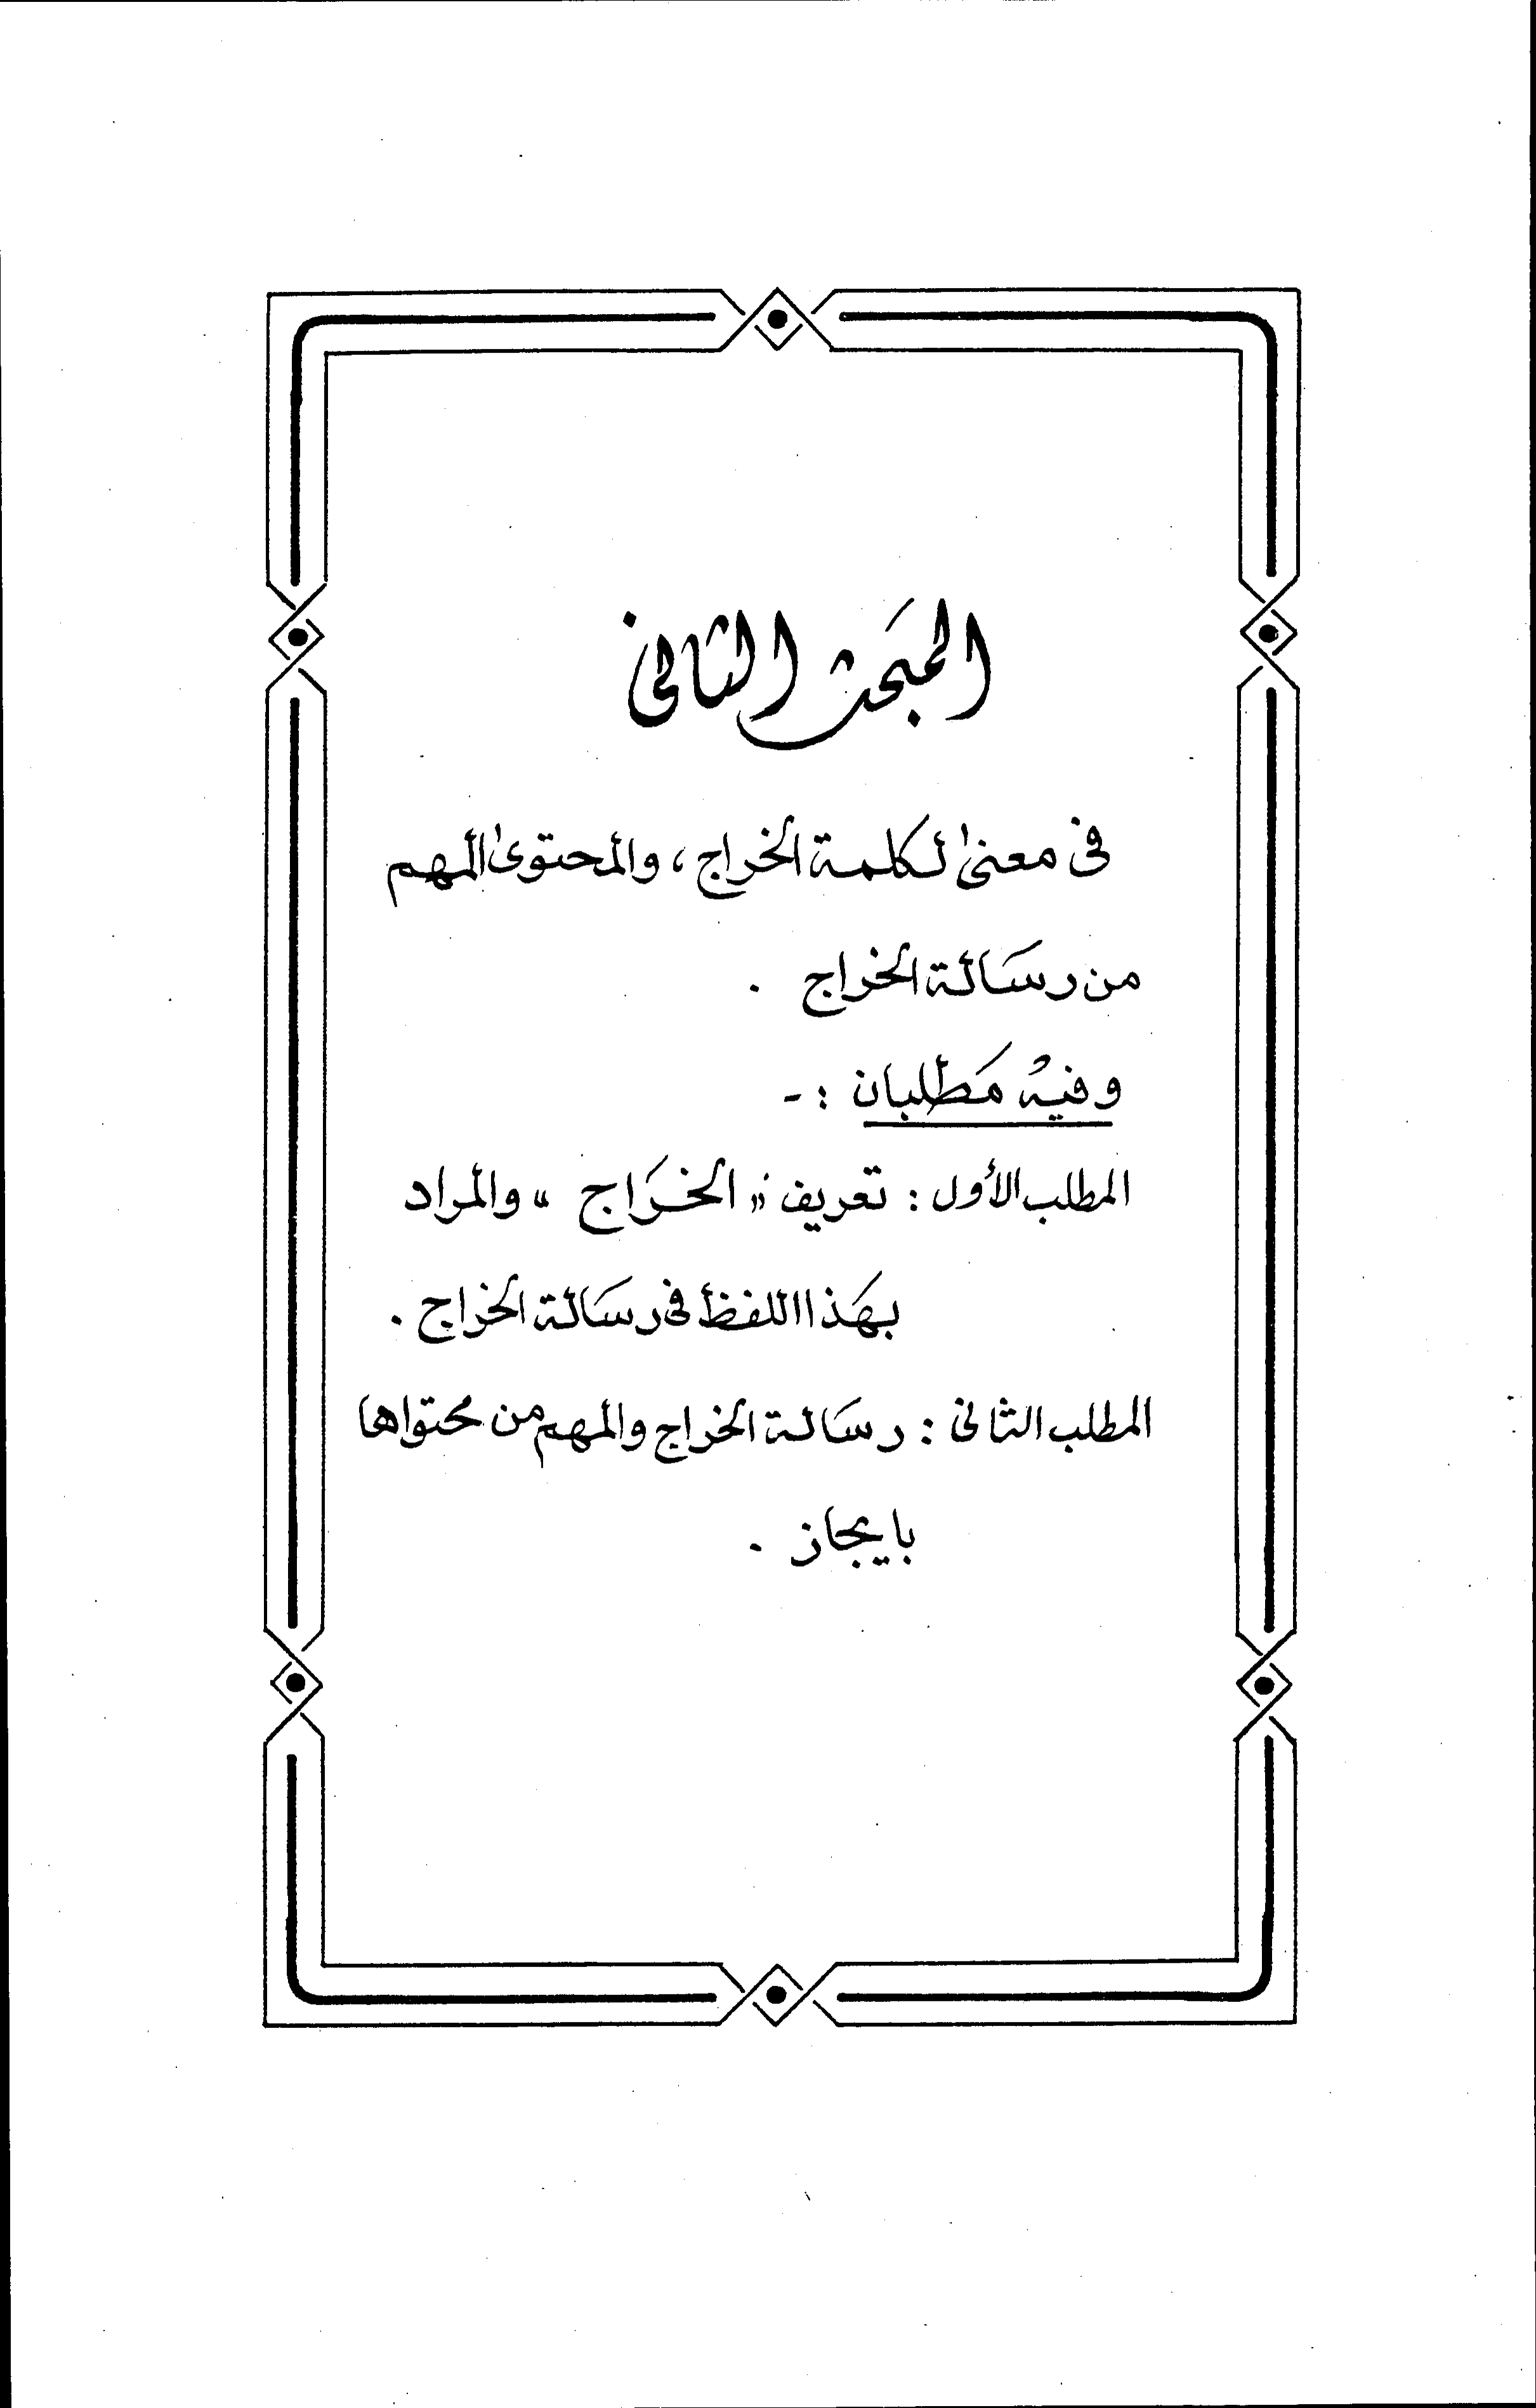 المبحث الثاني
في معنى لكلمة الخراج، والمحتوى المهم
من رسالة الخراج .
وفيه مطلبان : -
المطلب الأول : تعريف " الخراج " والمراد
بهذا اللفظ في رسالة الخراج .
المطلب الثاني : رسالة الخراج والمهم من محتواها
بايجاز .